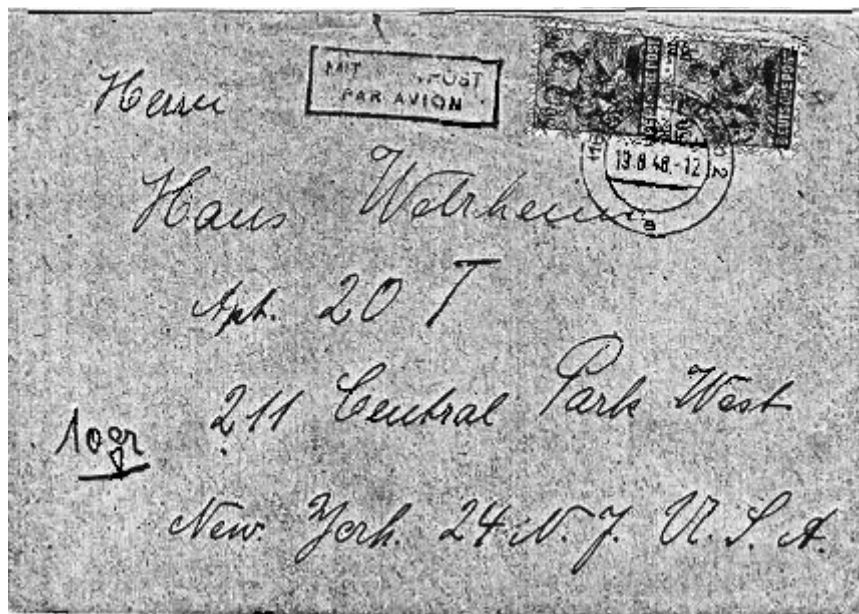 MIT POST
PAR AVION
13.8.48.-12
a
Herrn
Hans
Apt. 20 T
211 Central Park West
10 gr
New York. 24 N. Y. U. S. A.